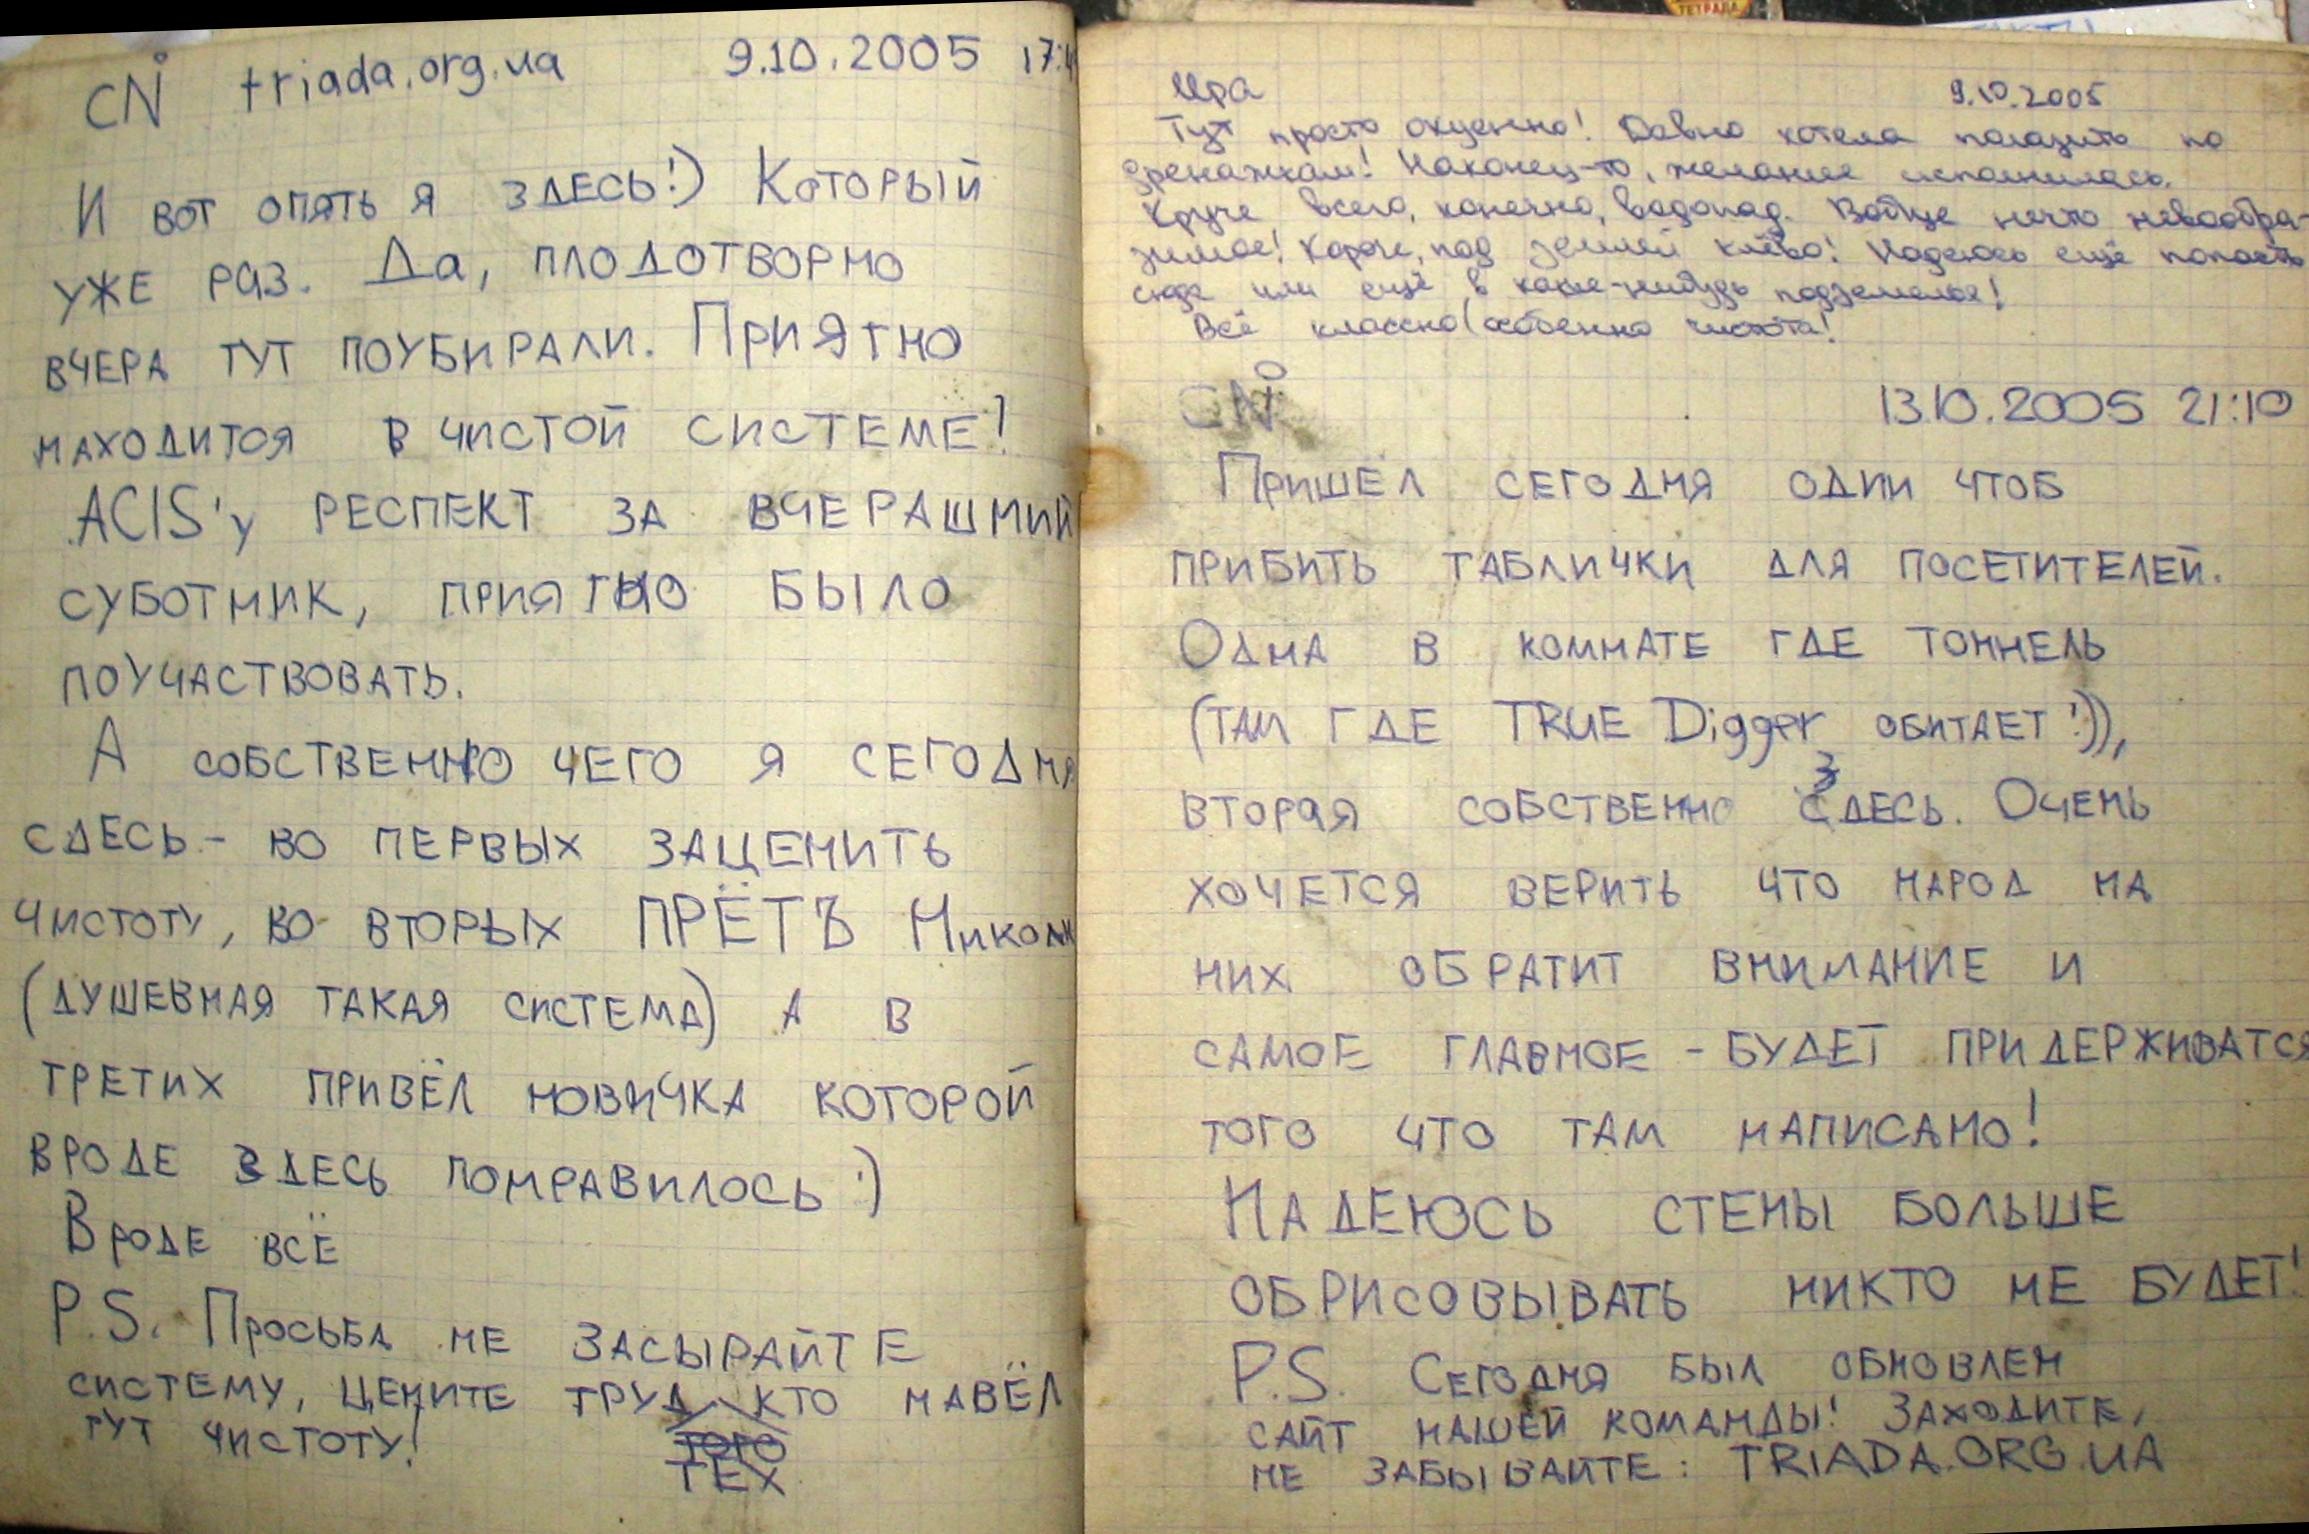 CN triada.org.ua 9.10.2005 17:4
И вот опять я здесь!) Который
уже раз. Да, плодотворно
вчера тут поубирали. Приятно
находится в чистой системе!
ACIS'у респект за вчерашний
суботник, приятно было
поучаствовать.
А собственно чего я сегодня
сдесь - во первых заценить
чистоту, во вторых ПРЁТЪ Никол
(душевная такая система) а в
третих привёл новичка которой
вроде здесь понравилось :)
Вроде всё
P.S. Просьба не засырайте
систему, цените труд кто навёл
тех
тут чистоту!
Ира 9.10.2005
Тут просто охуенно! Давно хотела полазить по
дренажкам! Наконец-то, желание исполнилось.
Круче всего, конечно, водопад. Вобще нечто невообра-
зимое! Короче, под землей клёво! Надеюсь ещё попасть
сюда или ещё в какие-нибудь подземелья!
Всё классно (особенно чистота!
CN 13.10.2005 21:10
Пришёл сегодня один чтоб
прибить таблички для посетителей.
Одна в комнате где тоннель
(там где TRUE Digger обитает :)),
вторая собственно здесь. Очень
хочется верить что народ на
них обратит внимание и
самое главное - будет придерживатся
того что там написано!
Надеюсь стены больше
обрисовывать никто не будет!
P.S. Сегодня был обновлен
сайт нашей команды! Заходите,
не забывайте: TRIADA.ORG.UA